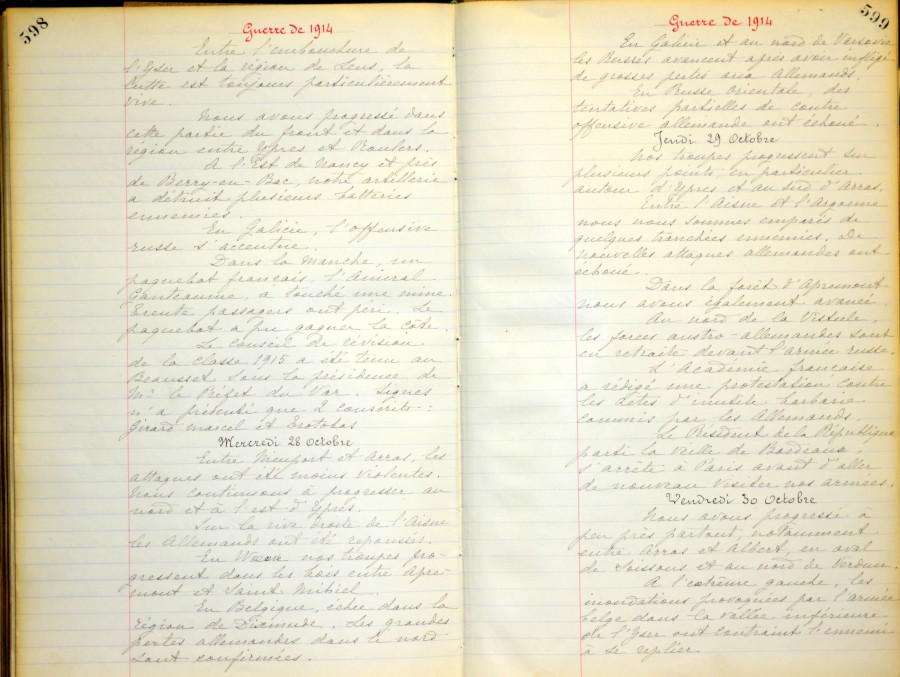 598
Guerre de 1914
Entre l'embouchure de
l'Yser et la région de Lens, la
lutte est toujours particulièrement
vive.
Nous avons progressé dans
cette partie du front et dans la
région entre Ypres et Roulers.
A l'Est de Nancy et près
de Berry-en-Bac, notre artillerie
a détruit plusieurs batteries
ennemies.
En Galicie, l'offensive
russe s'accentue.
Dans la Manche, un
paquebot français, l'Amiral
Ganteaume, a touché une mine.
Trente passagers ont péri. Le
paquebot a pu gagner la côte.
Le conseil de révision
de la classe 1915 a été tenu au
Beausset sous la présidence de
Mr le Préfet du Var. Signes
n'a présenté que 2 conscrits :
Girard Marcel et
Mercredi 28 Octobre
Entre Nieuport et Arras, les
attaques ont été moins violentes.
Nous continuons à progresser au
nord et à l'est d'Ypres.
Sur la rive droite de l'Aisne
les Allemands ont été repoussés.
En Woëvre nos troupes pro-
gressent dans les bois entre Apre-
mont et Saint-Mihiel.
En Belgique, échec dans la
région de Dixmude. Les grandes
pertes allemandes dans le nord
sont confirmées.
599
Guerre de 1914
En Galicie et au nord de Varsovie
les Russes avancent après avoir infligé
de grosses pertes aux Allemands.
En Russe Orientale, des
tentatives partielles de contre
offensive allemande ont échoué.
Jeudi 29 Octobre
Nos troupes progressent sur
plusieurs points, en particulier
autour d'Ypres et au sud d'Arras.
Entre l'Aisne et l'Argonne
nous nous sommes emparés de
quelques tranchées ennemies. De
nouvelles attaques allemandes ont
échoué.
Dans la forêt d'Apremont
nous avons également avancé.
Au nord de la Vistule,
les forces austro-allemandes sont
en retraite devant l'armée russe.
L'Académie française
a rédigé une protestation contre
les actes d'inutile barbarie
commis par les Allemands.
Le Président de la République
parti la veille de Bordeaux,
s'arrête à Paris avant d'aller
de nouveau visiter nos armées.
Vendredi 30 Octobre
Nous avons progressé à
peu près partout, notamment
entre Arras et Albert, en aval
de Soissons et au nord de Verdun.
A l'extrême gauche, les
inondations provoquées par l'armée
belge dans la vallée inférieure
de l'Yser ont contraint l'ennemi
à se replier.